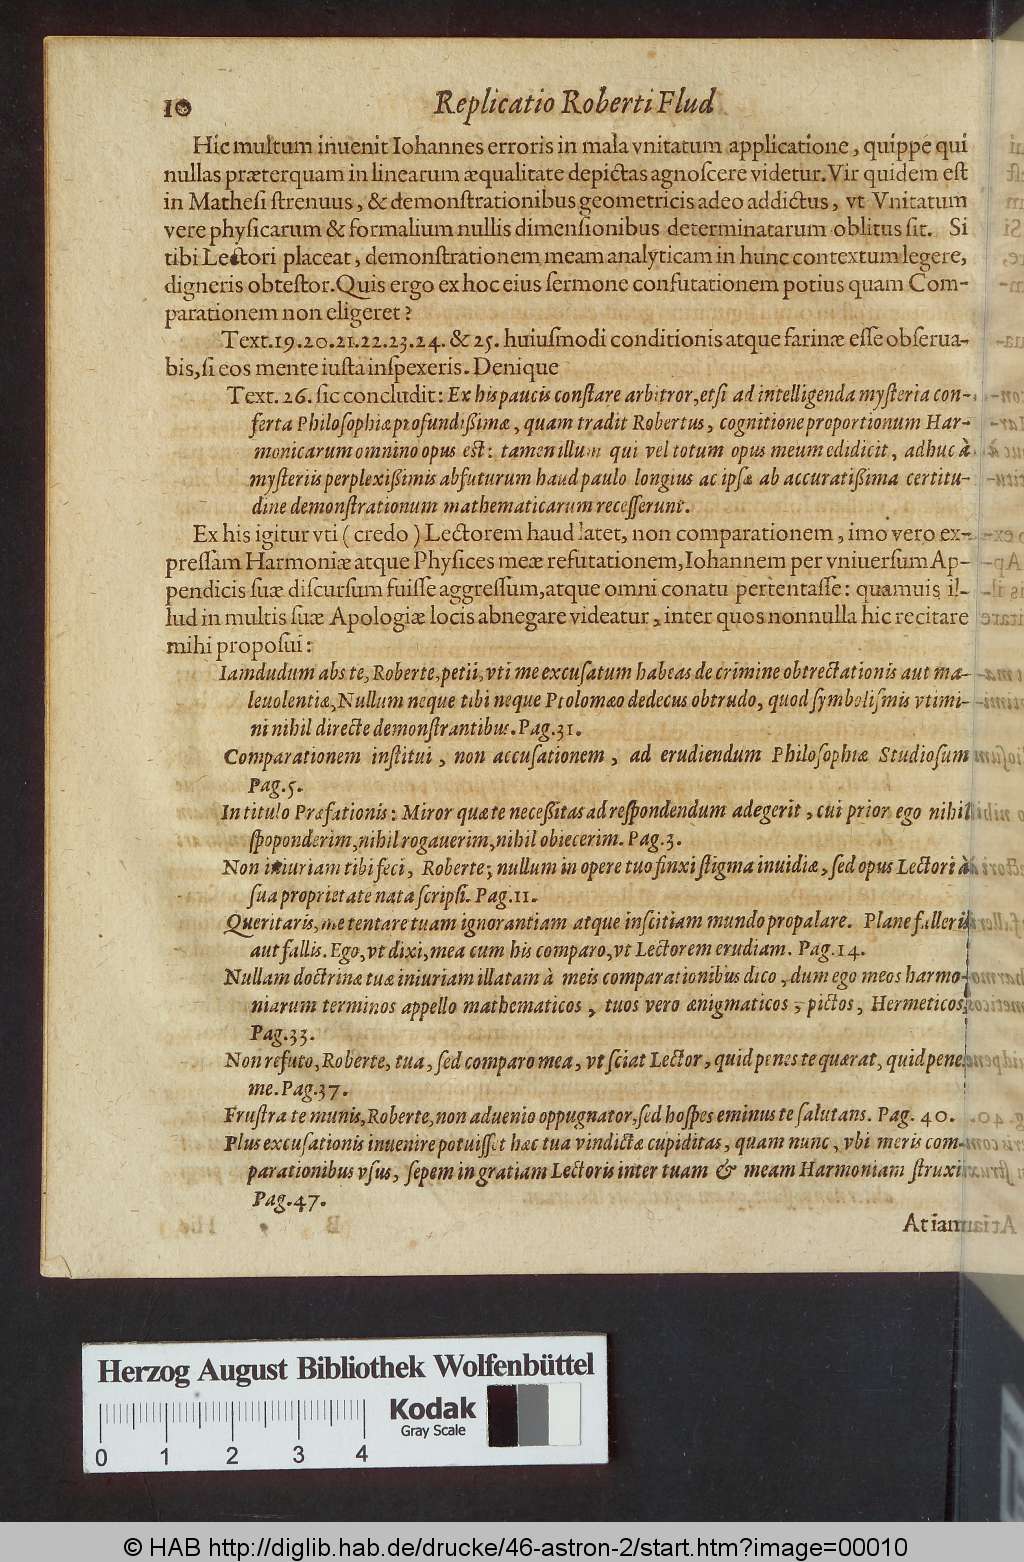 10 Replicatio Roberti Flud
Hic multum inuenit Iohannes erroris in mala vnitatum applicatione, quippe qui
nullas præterquam in linearum æqualitate depictas agnoſcere videtur. Vir quidem eſt
in Matheſi ſtrenuus, & demonſtrationibus geometricis adeo addictus, vt Vnitatum
vere phyſicarum & formalium nullis dimenſionibus determinatarum oblitus ſit. Si
tibi Lectori placeat, demonſtrationem meam analyticam in hunc contextum legere,
digneris obteſtor. Quis ergo ex hoc eius ſermone confutationem potius quam Com-
parationem non eligeret?
Text. 19. 20. 21. 22. 23. 24. & 25. huiuſmodi conditionis atque farinæ eſſe obſerua-
bis, ſi eos mente iuſta inſpexeris. Denique
Text. 26. ſic concludit: Ex his paucis conſtare arbitror, etſi ad intelligenda myſteria con-
ferta Philoſophiæ profundißimæ, quam tradit Robertus, cognitione proportionum Har-
monicarum omnino opus eſt: tamen illum qui vel totum opus meum edidicit, adhuc à
myſteriis perplexißimis abfuturum haud paulo longius ac ipſæ ab accuratißima certitu-
dine demonſtrationum mathematicarum receſſerunt.
Ex his igitur vti (credo) Lectorem haud latet, non comparationem, imo vero ex-
preſſam Harmoniæ atque Phyſices meæ refutationem, Iohannem per vniuerſum Ap-
pendicis ſuæ diſcurſum fuiſſe aggreſſum, atque omni conatu pertentaſſe: quamuis il-
lud in multis ſuæ Apologiæ locis abnegare videatur, inter quos nonnulla hic recitare
mihi propoſui:
Iamdudum abs te, Roberte, petii, vti me excuſatum habeas de crimine obtrectationis aut ma-
leuolentiæ, Nullum neque tibi neque Ptolomæo dedecus obtrudo, quod ſymboliſmis vtimi-
ni nihil directe demonſtrantibus. Pag. 31.
Comparationem inſtitui, non accuſationem, ad erudiendum Philoſophiæ Studioſum
Pag. 5.
In titulo Præfationis: Miror quæ te neceßitas ad reſpondendum adegerit, cui prior ego nihil
ſpoponderim, nihil rogauerim, nihil obiecerim. Pag. 3.
Non iniuriam tibi feci, Roberte; nullum in opere tuo finxi ſtigma inuidiæ, ſed opus Lectori à
ſua proprietate nata ſcripſi. Pag. 11.
Queritaris, me tentare tuam ignorantiam atque inſcitiam mundo propalare. Plane falleris
aut fallis. Ego, vt dixi, mea cum his comparo, vt Lectorem erudiam. Pag. 14.
Nullam doctrinæ tuæ iniuriam illatam à meis comparationibus dico, dum ego meos harmo-
niarum terminos appello mathematicos, tuos vero ænigmaticos, pictos, Hermeticos.
Pag. 33.
Non refuto, Roberte, tua, ſed comparo mea, vt ſciat Lector, quid penes te quærat, quid penes
me. Pag. 37.
Fruſtra te munis, Roberte, non aduenio oppugnator, ſed hoſpes eminus te ſalutans. Pag. 40.
Plus excuſationis inuenire potuiſſet hæc tua vindictæ cupiditas, quam nunc, vbi meris com-
parationibus vſus, ſepem in gratiam Lectoris inter tuam & meam Harmoniam ſtruxi.
Pag. 47.
At iam
Herzog August Bibliothek Wolfenbüttel
Kodak
Gray Scale
0 1 2 3 4
© HAB http://diglib.hab.de/drucke/46-astron-2/start.htm?image=00010